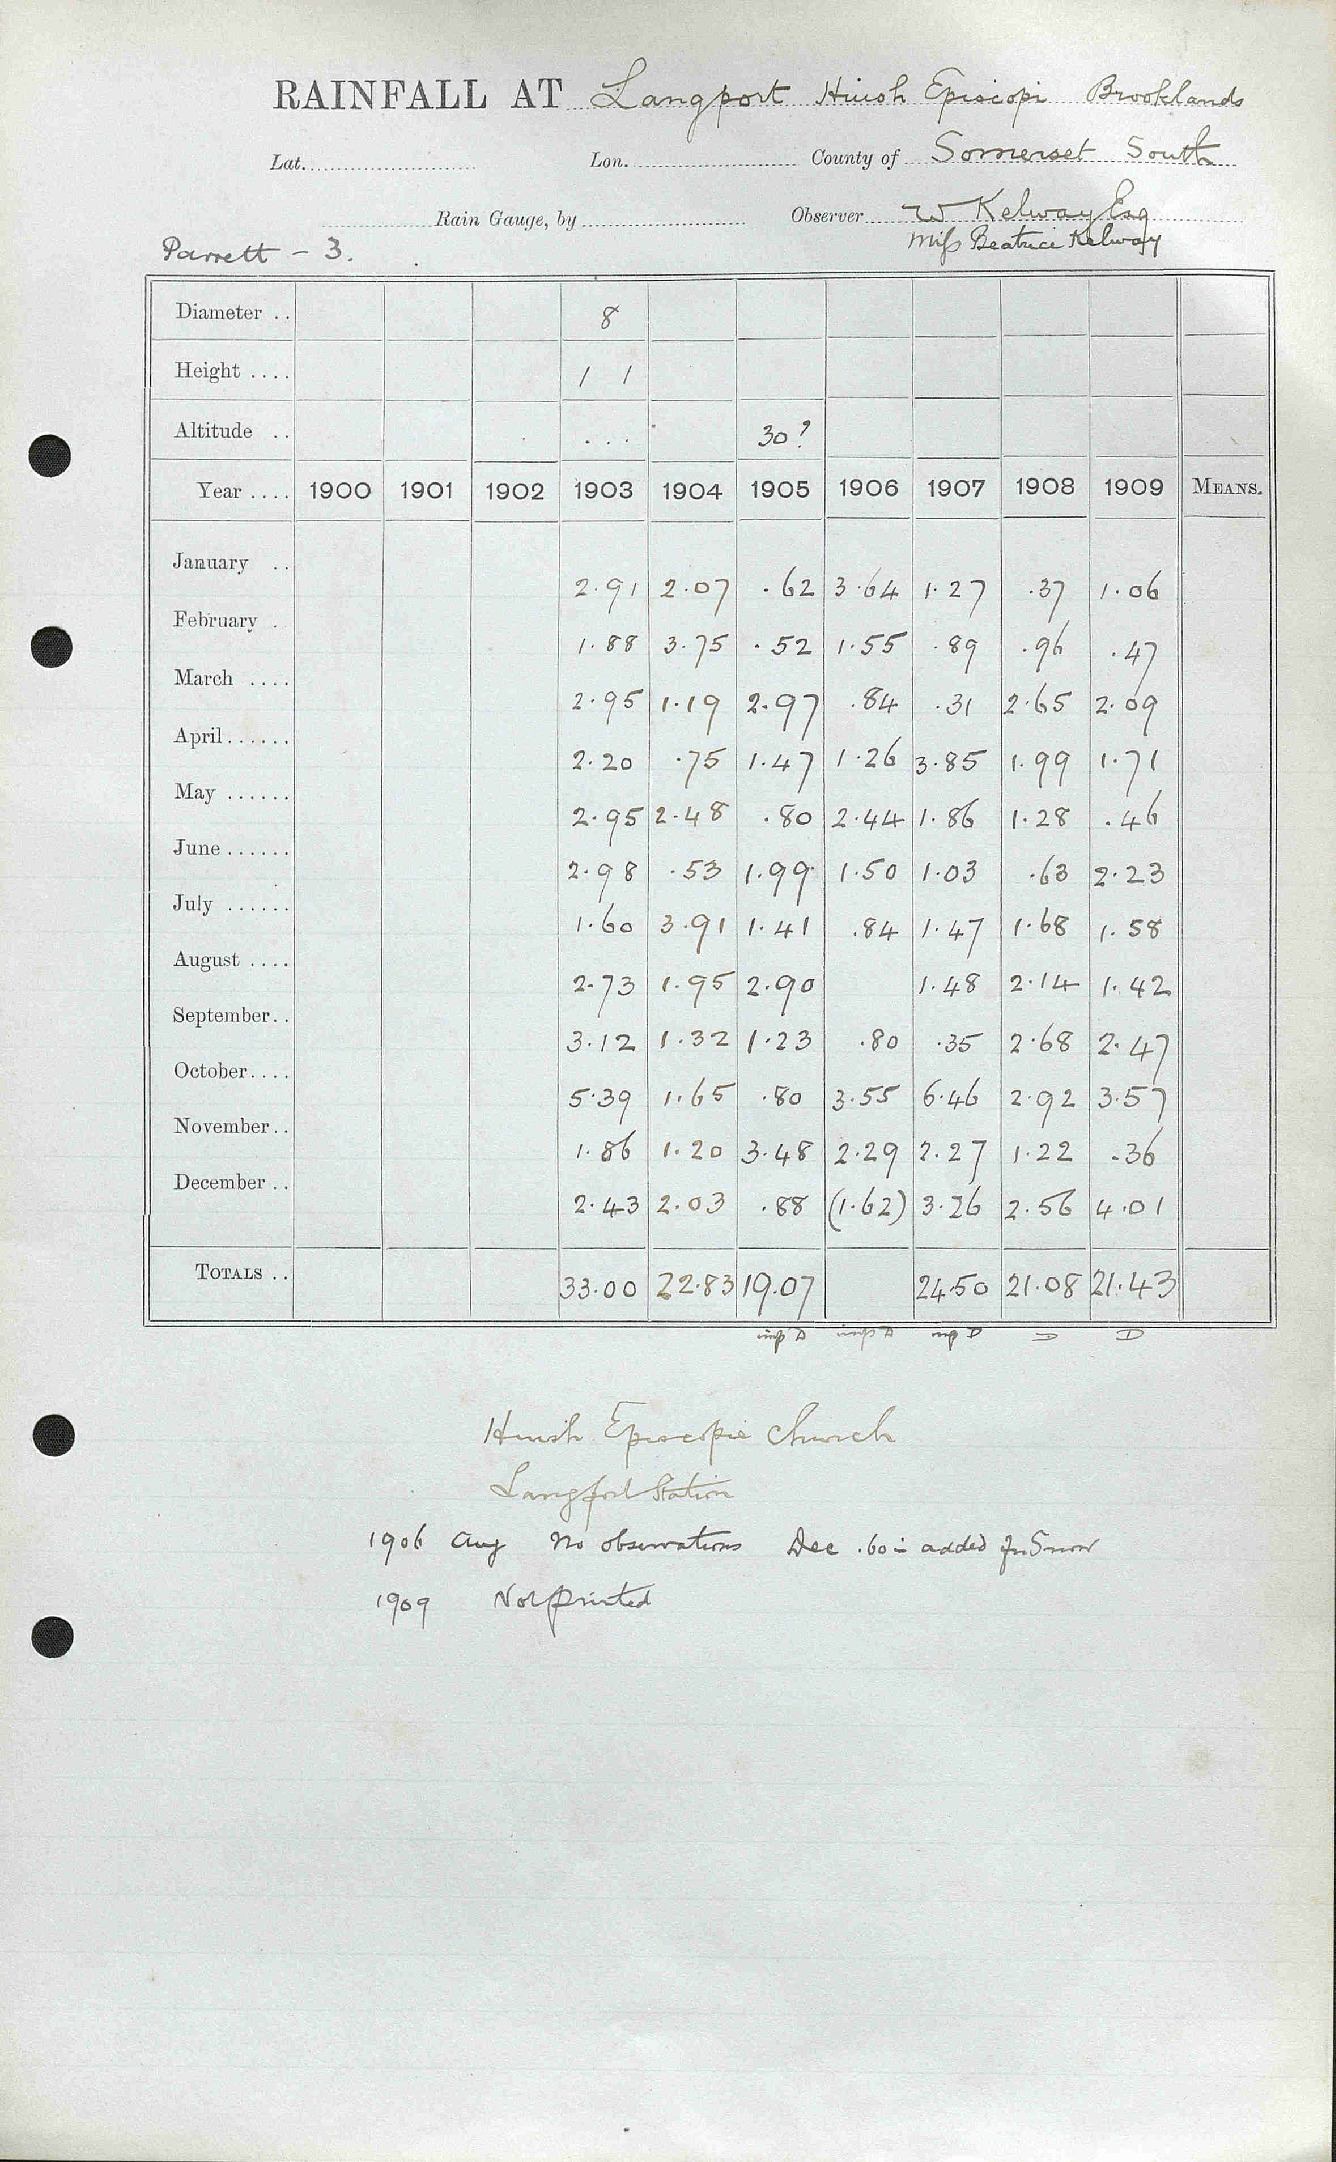 RAINFALL AT Langport Huish Episcopi Brooklands
Lat. Lon. County of Somerset South
Rain Gauge, by Observer W Kelway Esq
Parrett - 3. Miss Beatrice Kelway
Diameter .. 8
Height .... 1 1
Altitude .. ... 30?
Year .... 1900 1901 1902 1903 1904 1905 1906 1907 1908 1909 MEANS.
January .. 2.91 2.07 .62 3.64 1.27 .37 1.06
February . 1.88 3.75 .52 1.55 .89 .96 .47
March .... 2.95 1.19 2.97 .84 .31 2.65 2.09
April...... 2.20 .75 1.47 1.26 3.85 1.99 1.71
May ...... 2.95 2.48 .80 2.44 1.86 1.28 .46
June ...... 2.98 .53 1.99 1.50 1.03 .63 2.23
July ...... 1.60 3.91 1.41 .84 1.47 1.68 1.58
August .... 2.73 1.95 2.90 1.48 2.14 1.42
September.. 3.12 1.32 1.23 .80 .35 2.68 2.47
October.... 5.39 1.65 .80 3.55 6.46 2.92 3.57
November.. 1.86 1.20 3.48 2.29 2.27 1.22 .36
December .. 2.43 2.03 .88 (1.62) 3.26 2.56 4.01
TOTALS .. 33.00 22.83 19.07 24.50 21.08 21.43
D D D D D
Huish Episcopie Church
Langport Station
1906 Aug No observations Dec .60 in added for Snow
1909 Not printed